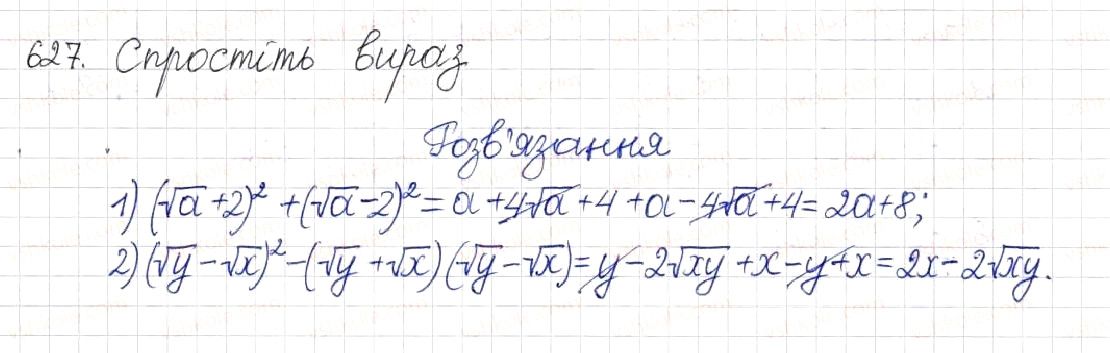 627. Спростіть вираз
Розв'язання
1) (√a + 2)² + (√a - 2)² = a + 4√a + 4 + a - 4√a + 4 = 2a + 8;
2) (√y - √x)² - (√y + √x)(√y - √x) = y - 2√xy + x - y + x = 2x - 2√xy.